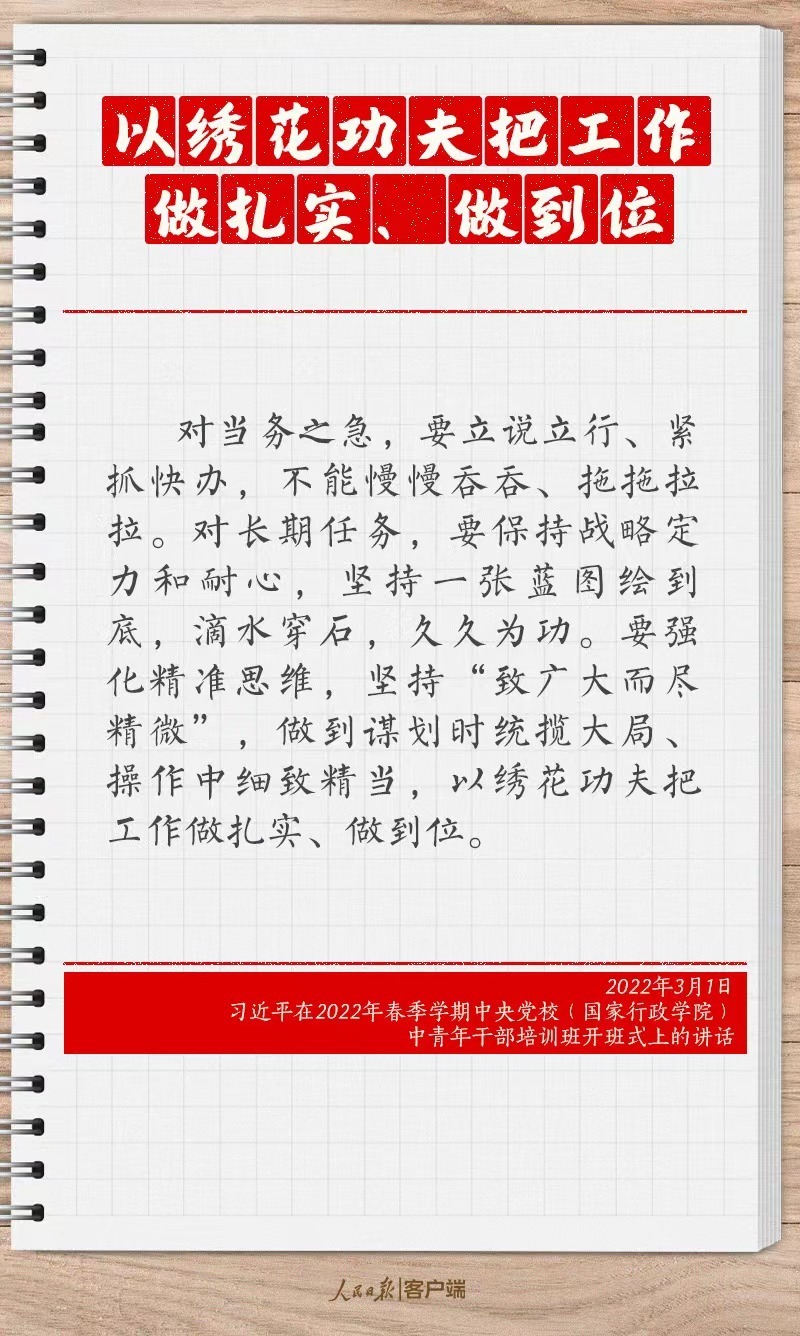 以绣花功夫把工作
做扎实、做到位
对当务之急，要立说立行、紧
抓快办，不能慢慢吞吞、拖拖拉
拉。对长期任务，要保持战略定
力和耐心，坚持一张蓝图绘到
底，滴水穿石，久久为功。要强
化精准思维，坚持“致广大而尽
精微”，做到谋划时统揽大局、
操作中细致精当，以绣花功夫把
工作做扎实、做到位。
2022年3月1日
习近平在2022年春季学期中央党校（国家行政学院）
中青年干部培训班开班式上的讲话
人民日报|客户端